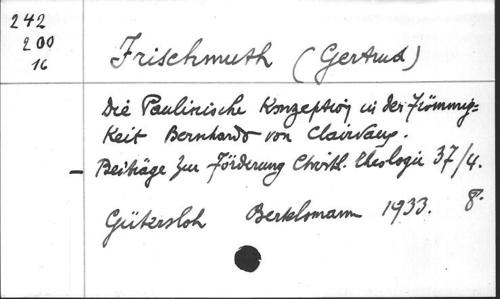 242
200
16
Frischmuth (Gertrud)
Die Paulinische Konzeption in der Frömmig-
keit Bernhards von Clairvaux.
- Beiträge zur Förderung Christl. Theologie 37/4.
Gütersloh Bertelsmann 1933. 8°.